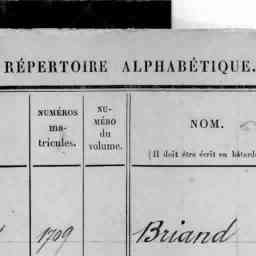 RÉPERTOIRE ALPHABÉTIQUE.
NUMÉROS
ma-
tricules.
NU-
MÉRO
du
volume.
NOM.
(Il doit être écrit en bâtard
1709
Briand